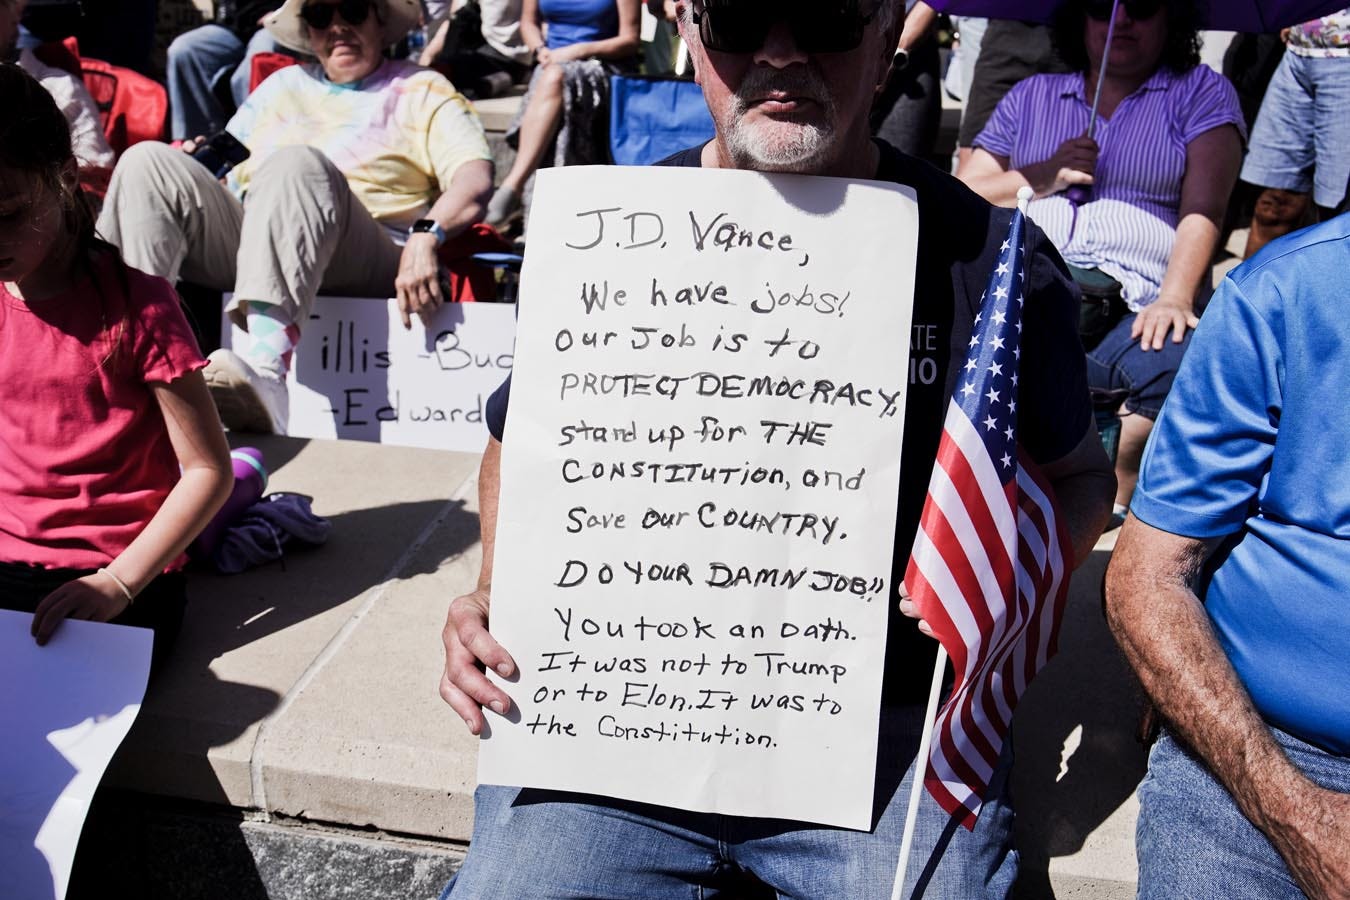 J.D. Vance,
We have jobs!
Our Job is to
PROTECT DEMOCRACY,
stand up for THE
CONSTITUTION, and
Save our COUNTRY.
DO YOUR DAMN JOB!!
You took an oath.
It was not to Trump
or to Elon. It was to
the Constitution.
illis - Bud
- Edward
ATE
IO